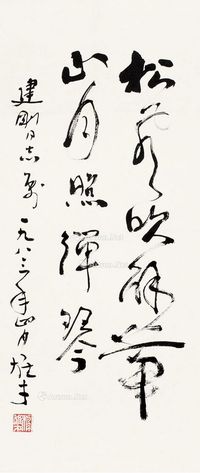 松风吹解带
山月照弹琴
建刚同志属
一九八三年四月